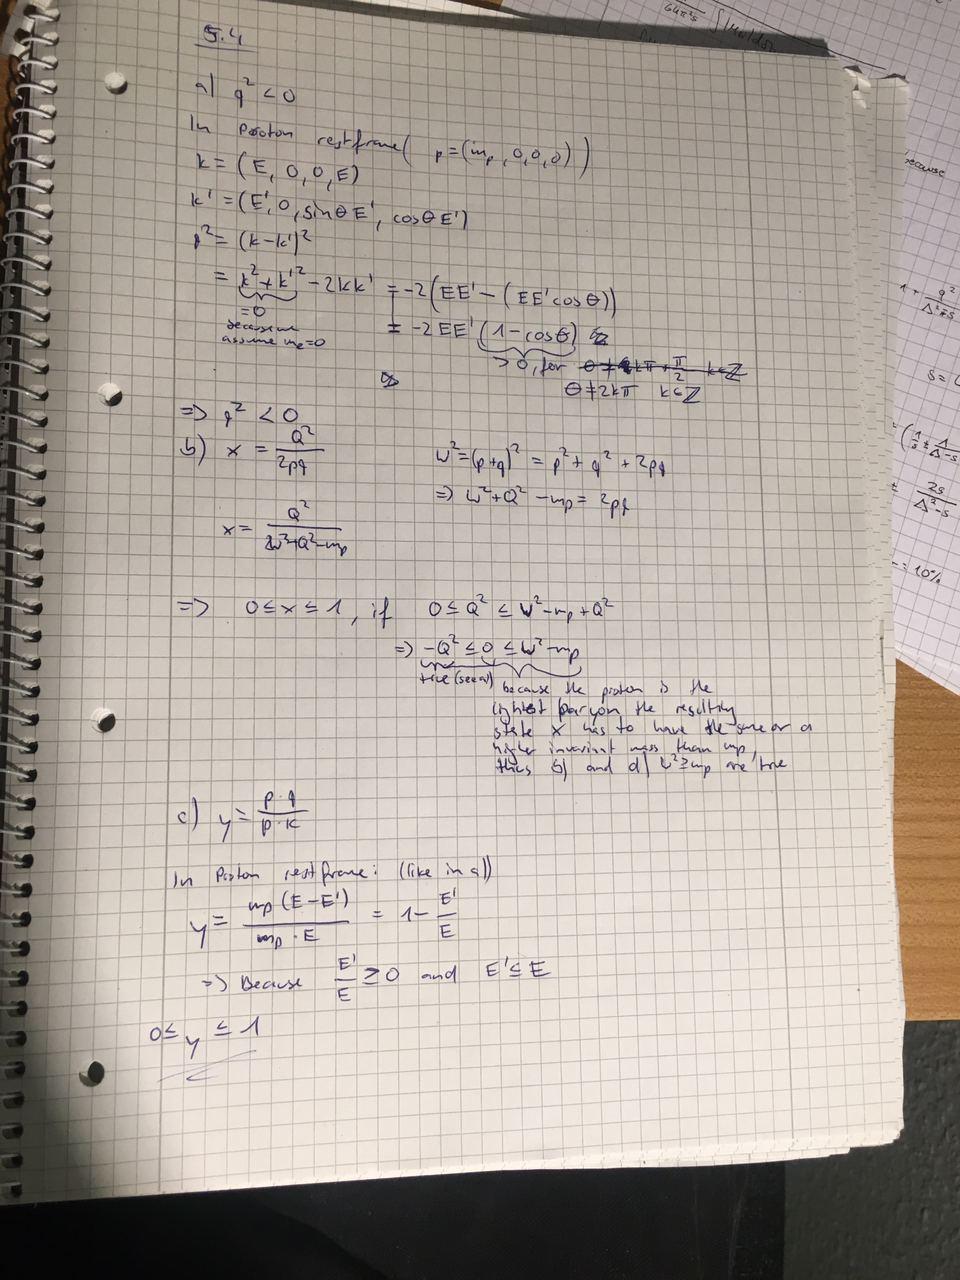 5.4
a) q² < 0
In Proton restframe( p=(m_p, 0,0,0))
k = (E, 0, 0, E)
k' = (E', 0, sinθ E', cosθ E')
q² = (k-k')²
= k² + k'² - 2kk' = -2(EE' - (EE' cosθ))
=0
because
assume m_e=0
= -2EE' (1-cosθ)
>0, for
θ ≠ 2kπ k∈ℤ
=> q² < 0
b) x = Q²/2pq
W² = (p+q)² = p² + q² + 2pq
=> W² + Q² - m_p = 2pq
x = Q²/W²+Q²-m_p
=> 0 ≤ x ≤ 1, if 0 ≤ Q² ≤ W² - m_p + Q²
=> -Q² ≤ 0 ≤ W² - m_p
true (see a)
because the proton is the
lightest baryon the resulting
state X has to have the same or a
higher invariant mass than m_p,
thus b) and d) W² ≥ m_p are true
c) y = p·q/p·k
In Proton restframe: (like in a))
y = m_p (E-E')/m_p · E = 1 - E'/E
=> Because E'/E ≥ 0 and E' ≤ E
0 ≤ y ≤ 1
because
= 10%